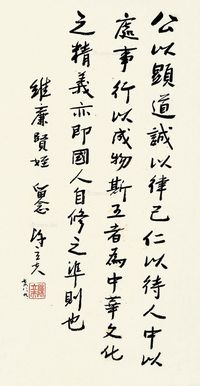 公以顯道誠以律己仁以待人中以
處事行以成物斯五者為中華文化
之精義亦即國人自修之準則也
維廉賢姪 留念 陳立夫